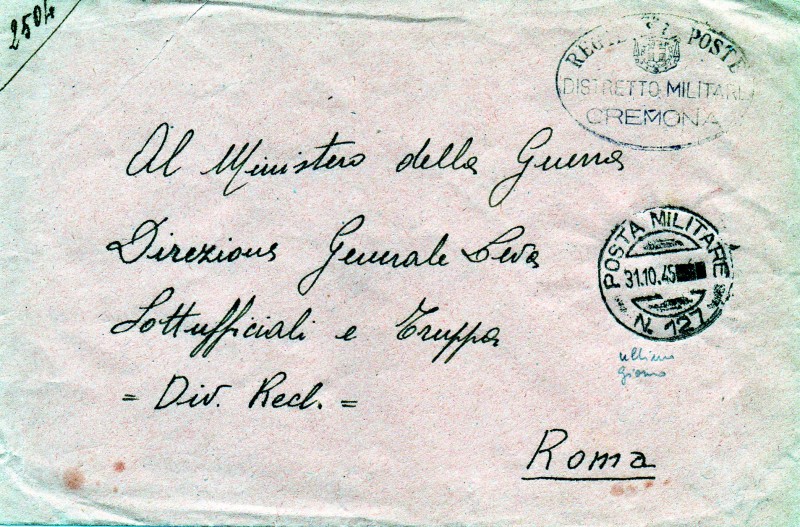 2504
REGIE POSTE
DISTRETTO MILITARE
CREMONA
Al Ministero della Guerra
Direzione Generale Leva
Sottufficiali e Truppa
= Div. Recl. =
Roma
POSTA MILITARE
31.10.45
N. 127
ultimo
giorno